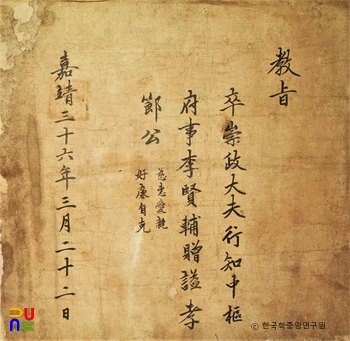 教旨
卒崇政大夫行知中樞
府事李賢輔贈諡孝
節公
慈惠愛親
好廉自克
嘉靖三十六年三月二十二日
© 한국학중앙연구원